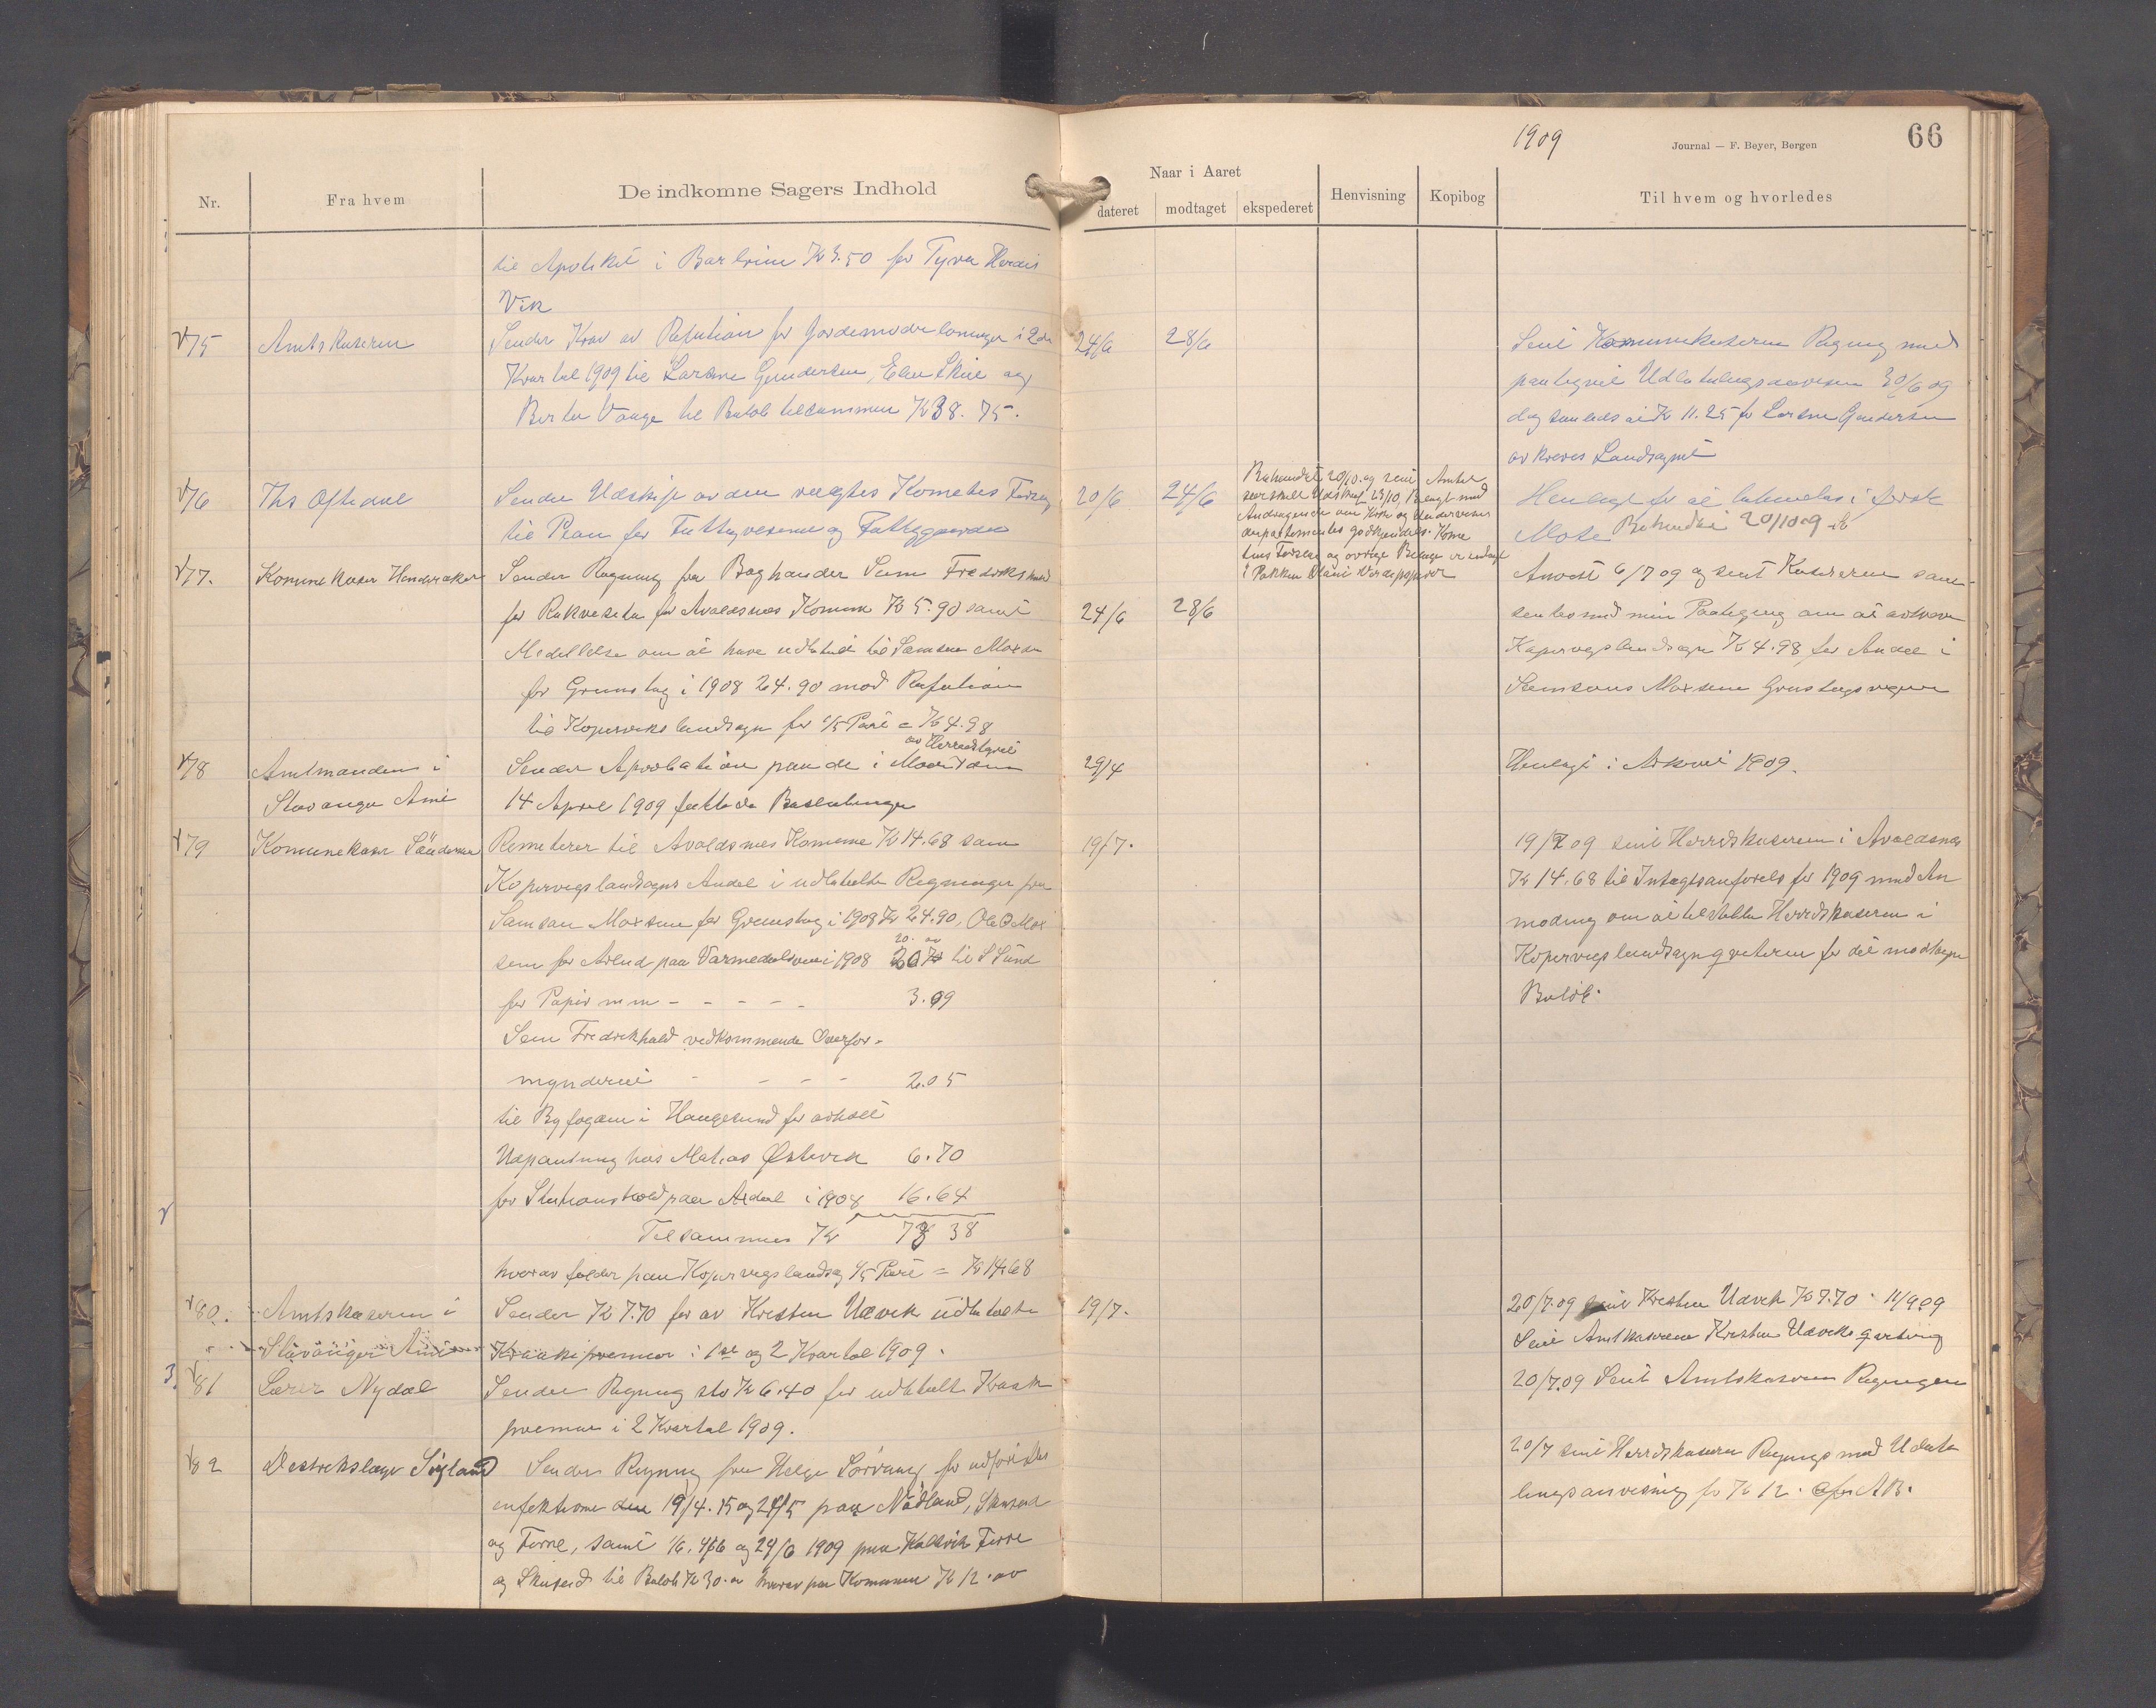 1909
Journal — F. Beyer, Bergen
66
Nr.
Fra hvem
De indkomne Sagers Indhold
Naar i Aaret
dateret
modtaget
ekspederet
Henvisning
Kopibog
Til hvem og hvorledes
til Apotheket i Kr 3.50 for
Vik
75
Amtskaseren
Sender Krav av Refution for Jordemoderlønninger i 2de
Kvartal 1909 til Larsine Gundersen, Elen Skeie og
Berta Vaage til Beløb tilsammen Kr 38.75.
24/6
28/6
Sent Kommunekaseren Regning med
paategnet Udbetalingsanvisn 30/6 09
dog saaledes at Kr 11.25 for Larsine Gundersen
avkræves Landsognet
76
Ths Oftedal
Sender Udskrift av den valgte Komites Forslag
til Plan for Fattigvesenet og Fattiggaarden
20/6
24/6
Behandlet 20/10 og sent Amtet
særskilt Udskrift 23/10,
Andragende om Kirke og Undervisnings
departementets godkjendelse. Komi
teens Forslag og øvrige Bilage er indlagt
i Pakken
Henlagt for at behandles i første
Møte. Behandlet 20/10 09
77.
Komunekaser Henderaker
Sender Regning fra Boghandler Sem Fredrikshald
for Rekvisita for Avaldsnes Komune Kr 5.90 samt
Meddelelse om at have udbetalt til Samson Maxsen
for Grustag i 1908 24.90 mod Refution
til Kopervikslandsogn for 1/5 Part = Kr 4.98
24/6
28/6
Anvist 6/7 09 og sent Kaseren sam
sendes med min Paategning om at avkræve
Kopervigslandsogn Kr 4.98 for Andel i
Samsons Maxsens Grustagsregn
78
Amtmanden i
Stavanger Amt
Sender Aprobation paa de i Møde
av Herredstyret
14 April 1909 fattede Beslutninger
29/4
Henlagt i Arkivet 1909.
79
Komunekaser Sändersen
Remeterer til Avaldsnes Komune Kr 14.68 som
Kopervegslandsogns Andel i udbetalte Regninger fra
Samson Maxsen for Grustag i 1908 Kr 24.90, Ole O Max
sen for Arbeid paa i 1908 20. til S Sund
for Papir m m - - - - - 3.09
Sem Fredrikhald vedkommende Overfor-
mynderiet - - - - 2.05
til Byfogden i Haugesund for avholt
Udpantning hos Matias Østevik 6.70
for Stationshold paa Ardal i 1908 16.64
Tilsammen Kr 73 38
hvorav falder paa Kopervegslandsog 1/5 Part = Kr 14.68
19/7.
19/7 09 sent Herredskaseren i Avaldsnes
Kr 14.68 til Indtægtsanførels for 1909 med An
modning om at tilstille Herredskaseren i
Kopervegslandsogn qvitering for det modtagne
Beløb.
80.
Amtskaseren i
Stavanger Amt
Sender Kr 7.70 for av Kristen Udvik udbetalte
Kraakepremier i 1ste og 2 Kvartal 1909.
19/7.
20/7.09 sent Kristen Udvik Kr 7.70. 11/9 09
Sent Amtskaseren Kristen Udviks qvitering
81
Lærer Nydal
Sender Regning stor Kr 6.40 for udbetalte Kraak
premier i 2 Kvartal 1909.
20/7.09 Sent Amtskaseren Regningen
82
Destrikslæge Sigland
Sender Regning fra Helge Sørvaag for udført Des
enfektione den 19/4. 15 og 24/5 paa Nødland, Skeiseid
og Førre, samt 1/6. 4/6 og 24/6 1909 paa Kallevik Førre
og Skeiseid til Beløb Kr 30. hvorav paa Komunen Kr 12.
20/7 sent Herredskaseren Regnings med Udbeta
lingsanvisning for Kr 12.